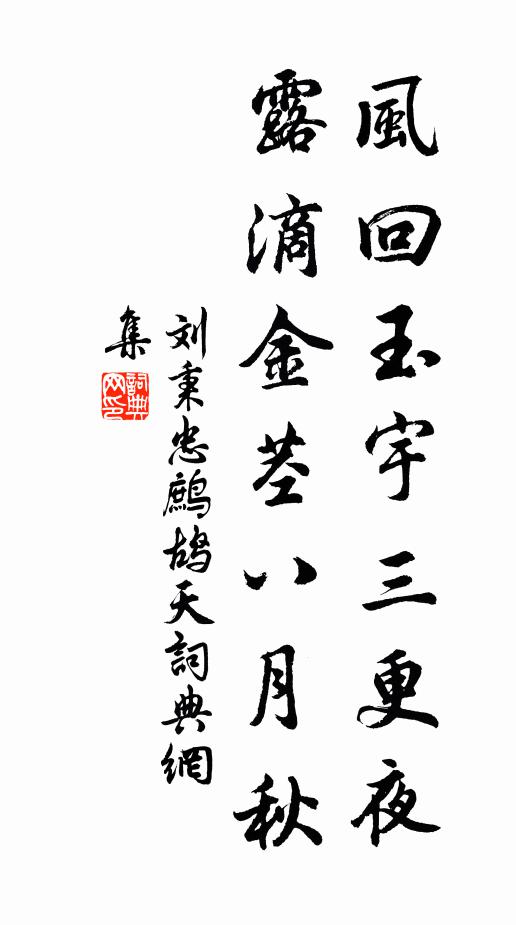 風回玉宇三更夜
露滴金莖八月秋
刘秉忠鷓鴣天詞典網
集
詞典
网印